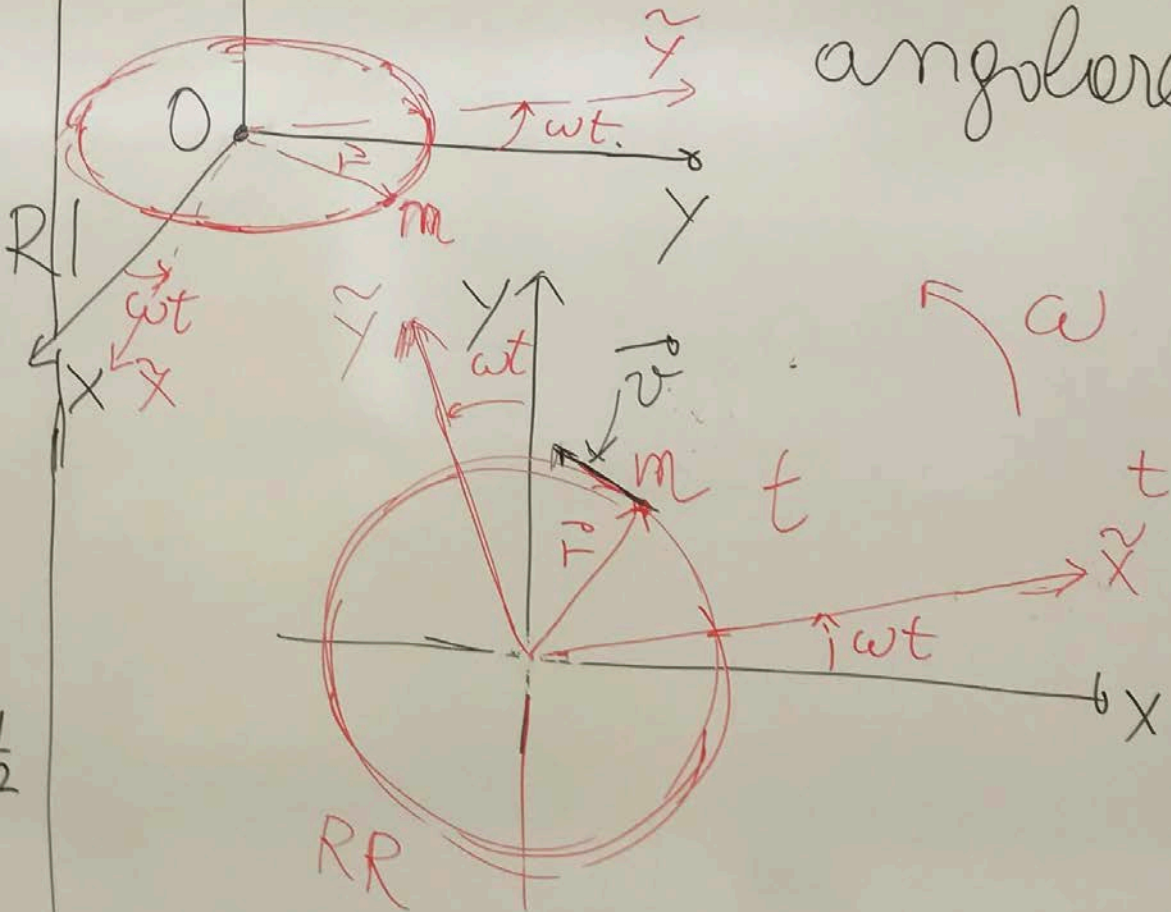 Ỹ
angolare
O
ωt.
r⃗
m
Y
RI
ωt
X X̃
Ỹ
Y
ωt
v⃗
ω
m
t
t
r⃗
X̃
ωt
X
RR